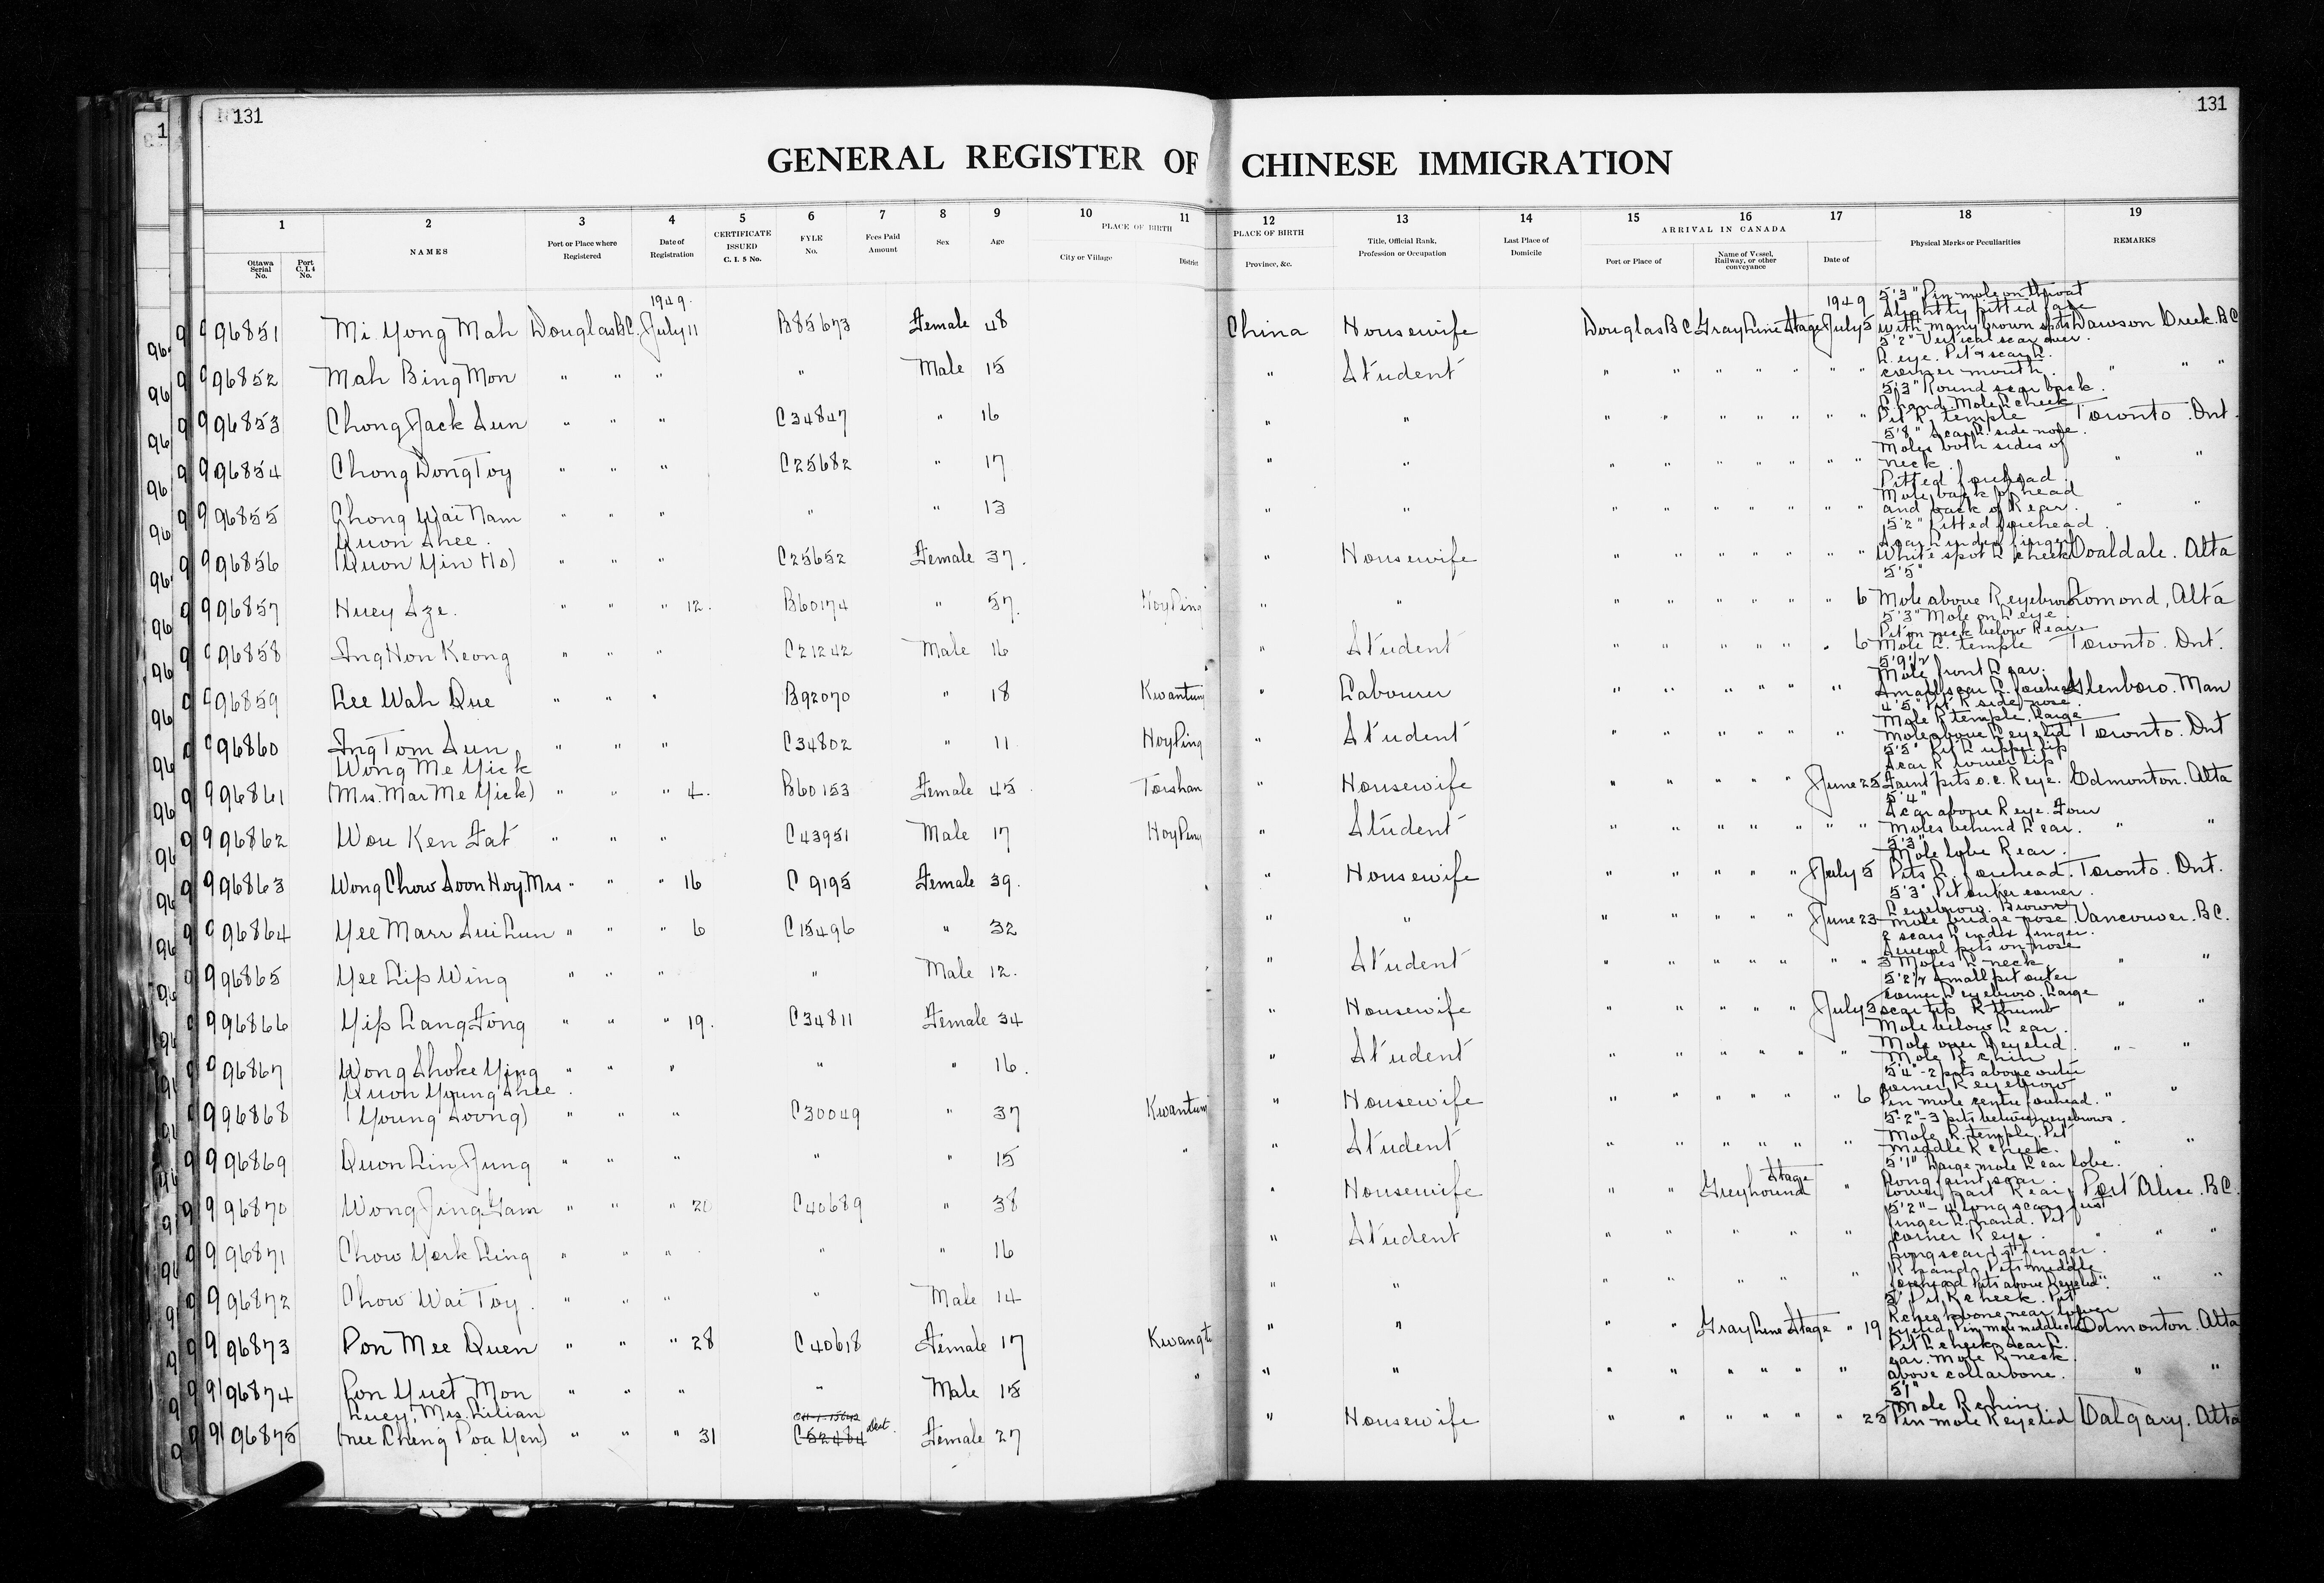 131
131
GENERAL REGISTER OF CHINESE IMMIGRATION
1 2 3 4 5 6 7 8 9 10 11 12 13 14 15 16 17 18 19
Ottawa Serial No.
Port C. I. 4 No.
NAMES
Port or Place where Registered
Date of Registration
CERTIFICATE ISSUED C. I. 5 No.
FYLE No.
Fees Paid Amount
Sex
Age
PLACE OF BIRTH
City or Village
District
PLACE OF BIRTH
Province, &c.
Title, Official Rank, Profession or Occupation
Last Place of Domicile
ARRIVAL IN CANADA
Port or Place of
Name of Vessel, Railway, or other conveyance
Date of
Physical Marks or Peculiarities
REMARKS
1949. 1949
96851 Mi Yong Mah Douglas B.C. July 11 B85673 Female 48 China Housewife Douglas B C Gray Line Stage July 5 5'3" Pin mole on throat Slightly pitted face with many brown spots Dawson Creek. B.C
96852 Mah Bing Mon " " " " Male 15 " Student " " " " " " " 5'2" Vertical scar over L. eye. Pit & scar L. corner mouth. " " "
96853 Chong Jack Sun " " " C34847 " 16 " " " " " " " " " 5'3" Round scar back L. hand. Mole L cheek Pit R. temple Toronto. Ont.
96854 Chong Dong Toy " " " C25682 " 17 " " " " " " " " " 5'8" Scar L. side nose. Moles both sides of neck. " "
96855 Chong Wai Nam " " " " " 13 " " " " " " " " " Pitted forehead. Mole back of head and back of R ear. " "
96856 Quon Shee. (Quon Yin Ho) " " " C25652 Female 37. " Housewife " " " " " " " 5'2" Pitted forehead. Scar L index finger White spot L cheek Coaldale. Alta
96857 Huey Sze. " " " 12. B60174 " 57. Hoy Ping " " " " " " " " 6 5'5" Mole above R eyebrow Lomond, Alta
96858 Ing Hon Keong " " " C21242 Male 16 " Student " " " " " " 6 5'3" Mole on L eye. Pit on neck below R ear. Mole L. temple Toronto. Ont.
96859 Lee Wah Que " " " B92070 " 18 Kwantung " Labourer " " " " " " " 5'9 1/2 Mole front L ear. Small scar L. forehead Glenboro. Man
96860 Ing Tom Sun " " " C34802 " 11 Hoy Ping " Student " " " " " " " 4'5" Pit R side nose. Mole R temple. Large mole above L eyelid Toronto. Ont
96861 Wong Me Yick (Mrs. Mar Me Yick) " " " 4. B60153 Female 45 Toishan " Housewife " " " " " June 25 5'5" Pit L upper lip Scar R lower lip Faint pits o.c. R eye. Edmonton. Alta
96862 Wou Ken Fat " " " C43951 Male 17 Hoy Ping " Student " " " " " " " 5'4" Scar above R eye. Four moles behind L ear. " "
96863 Wong Chow Soon Hoy. Mrs " " " 16 C 9195 Female 39. " Housewife " " " " " July 5 5'3" Mole lobe R ear. Pits R. forehead. Toronto. Ont.
96864 Yee Marr Sui Lun " " " 6 C15496 " 32 " " " " " " " June 23 5'3" Pit outer corner L eyebrow. Brown mole bridge nose. Vancouver. B C.
96865 Yee Lip Wing " " " " Male 12. " Student " " " " " " " 2 scars L index finger. Several pits on nose 3 Moles L neck. " "
96866 Yip Lang Fong " " " 19. C34811 Female 34 " Housewife " " " " " July 5 5'2 1/2 Small pit outer corner L eyebrow. Large scar tip R thumb " "
96867 Wong Shoke Ying " " " " " 16. " Student " " " " " " Mole below L ear. Mole over L eyelid. Mole R chin " "
96868 Quon Young Shee. (Young Soong) " " " C30049 " 37 Kwantung " Housewife " " " " " " 6 5'4" - 2 pits above outer corner R eyebrow Pin mole centre forehead. " "
96869 Quon Lin Jung " " " " " 15 " " Student " " " " " " 5'-2" - 3 pits between eyebrows. Mole R. temple. Pit Middle R cheek. " "
96870 Wong Jing Gam " " " 20 C40689 " 38 " Housewife " " Greyhound Stage " 5'1" Large mole L ear lobe. Long faint scar lower part R ear. Port Alice. B.C.
96871 Chow York Ling " " " " " 16 " Student " " " " " 5'2" - 4" long scar first finger L. hand. Pit corner R eye. " " "
96872 Chow Wai Toy. " " " " Male 14 " " " " " " " Long scar 1st finger. R hand. Pits middle forehead Pits above R eyelid. " "
96873 Pon Mee Quen " " " 28 C40618 Female 17 Kwangtu " " " " Gray Line Stage " 19 5' Pit R cheek. Pit R cheek bone near lower eyelid. Pin mole middle Edmonton. Alta
96874 Pon Yuet Mon " " " " Male 15 " " " " " " " " " Pit L cheek. Scar L. ear. Mole R neck above collarbone. " "
96875 Luey, Mrs. Lilian (nee Cheng Poa Yen) " " " 31 C52484 Female 27 " Housewife " " " " " " 25 5'1" Mole R chin Pin mole R eyelid Calgary. Alta